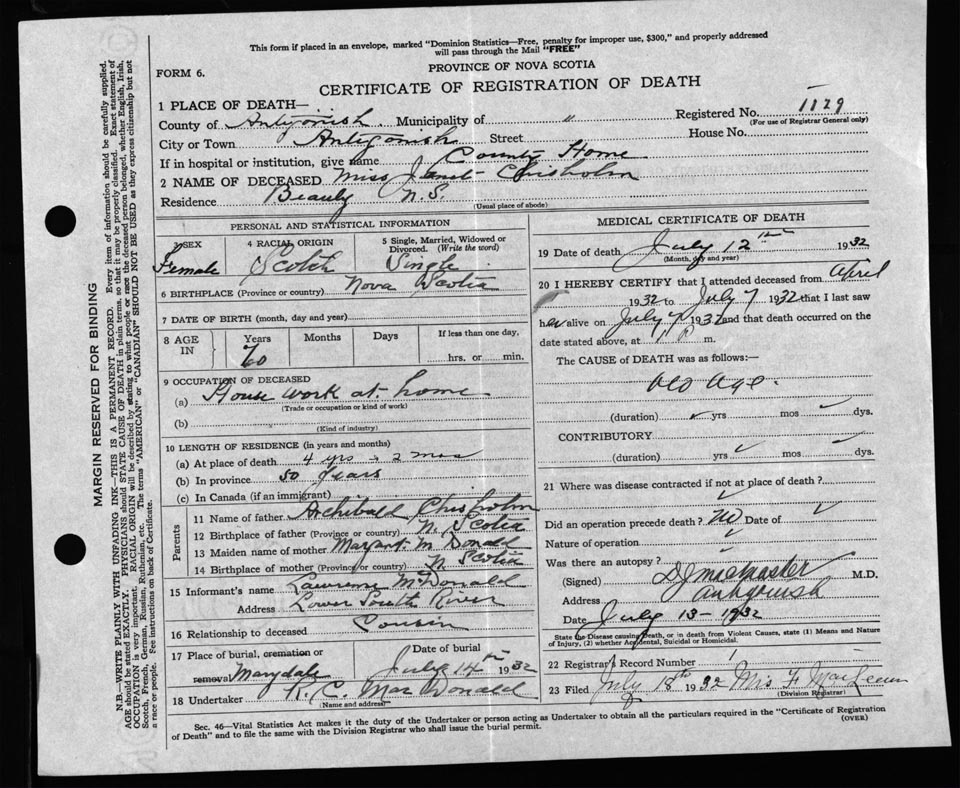 This form if placed in an envelope, marked "Dominion Statistics—Free, penalty for improper use, $300," and properly addressed
will pass through the Mail "FREE"
PROVINCE OF NOVA SCOTIA
FORM 6.
CERTIFICATE OF REGISTRATION OF DEATH
1 PLACE OF DEATH—
Registered No. 1129
(For use of Registrar General only)
County of Antigonish. Municipality of "
City or Town Antigonish Street House No.
If in hospital or institution, give name County Home
2 NAME OF DECEASED Miss Janet Chisholm
Residence Beauly N.S.
(Usual place of abode)
PERSONAL AND STATISTICAL INFORMATION
3 SEX 4 RACIAL ORIGIN 5 Single, Married, Widowed or Divorced. (Write the word)
Female Scotch Single
6 BIRTHPLACE (Province or country) Nova Scotia
7 DATE OF BIRTH (month, day and year)
8 AGE IN Years Months Days If less than one day,
hrs. or min.
9 OCCUPATION OF DECEASED
(a) House work at home
(Trade or occupation or kind of work)
(b)
(Kind of industry)
10 LENGTH OF RESIDENCE (in years and months)
(a) At place of death 4 yrs 2 mos
(b) In province 80 years
(c) In Canada (if an immigrant)
Parents
11 Name of father Archibald Chisholm
12 Birthplace of father (Province or country) N. Scotia
13 Maiden name of mother Margaret McDonald
14 Birthplace of mother (Province or country) N Scotia
15 Informant's name Lawrence McDonald
Address Lower South River
16 Relationship to deceased Cousin
17 Place of burial, cremation or removal Marydale
Date of burial July 14th 1932
18 Undertaker A. C. MacDonald
(Name and address)
MEDICAL CERTIFICATE OF DEATH
19 Date of death July 12th 1932
(Month, day and year)
20 I HEREBY CERTIFY that I attended deceased from April
1932 to July 7 1932 that I last saw
her alive on July 7 1932 and that death occurred on the
date stated above, at 11 P m.
The CAUSE of DEATH was as follows:
Old Age.
(duration) yrs mos dys.
CONTRIBUTORY
(duration) yrs mos dys.
21 Where was disease contracted if not at place of death?
Did an operation precede death? No Date of
Nature of operation
Was there an autopsy?
(Signed) M.D.
Address Antigonish
Date July 13- 1932
State the Disease causing Death, or in death from Violent Causes, state (1) Means and Nature
of Injury, (2) whether Accidental, Suicidal or Homicidal.
22 Registrar's Record Number
23 Filed July 18th 1932 Mrs F
(Division Registrar)
Sec. 46—Vital Statistics Act makes it the duty of the Undertaker or person acting as Undertaker to obtain all the particulars required in the "Certificate of Registration
of Death" and to file the same with the Division Registrar who shall issue the burial permit.
(OVER)
MARGIN RESERVED FOR BINDING
N.B.—WRITE PLAINLY, WITH UNFADING INK—THIS IS A PERMANENT RECORD. Every item of information should be carefully supplied.
AGE should be stated EXACTLY. PHYSICIANS should STATE CAUSE OF DEATH in plain terms, so that it may be properly classified. Exact statement of
OCCUPATION is very important. RACIAL ORIGIN will be described by stating to what people or race the deceased person belonged, whether English, Irish,
Scotch, French, German, Russian, Ruthenian, etc. The terms "AMERICAN" or "CANADIAN" SHOULD NOT BE USED as they express citizenship but not
a race or people. See instructions on back of Certificate.